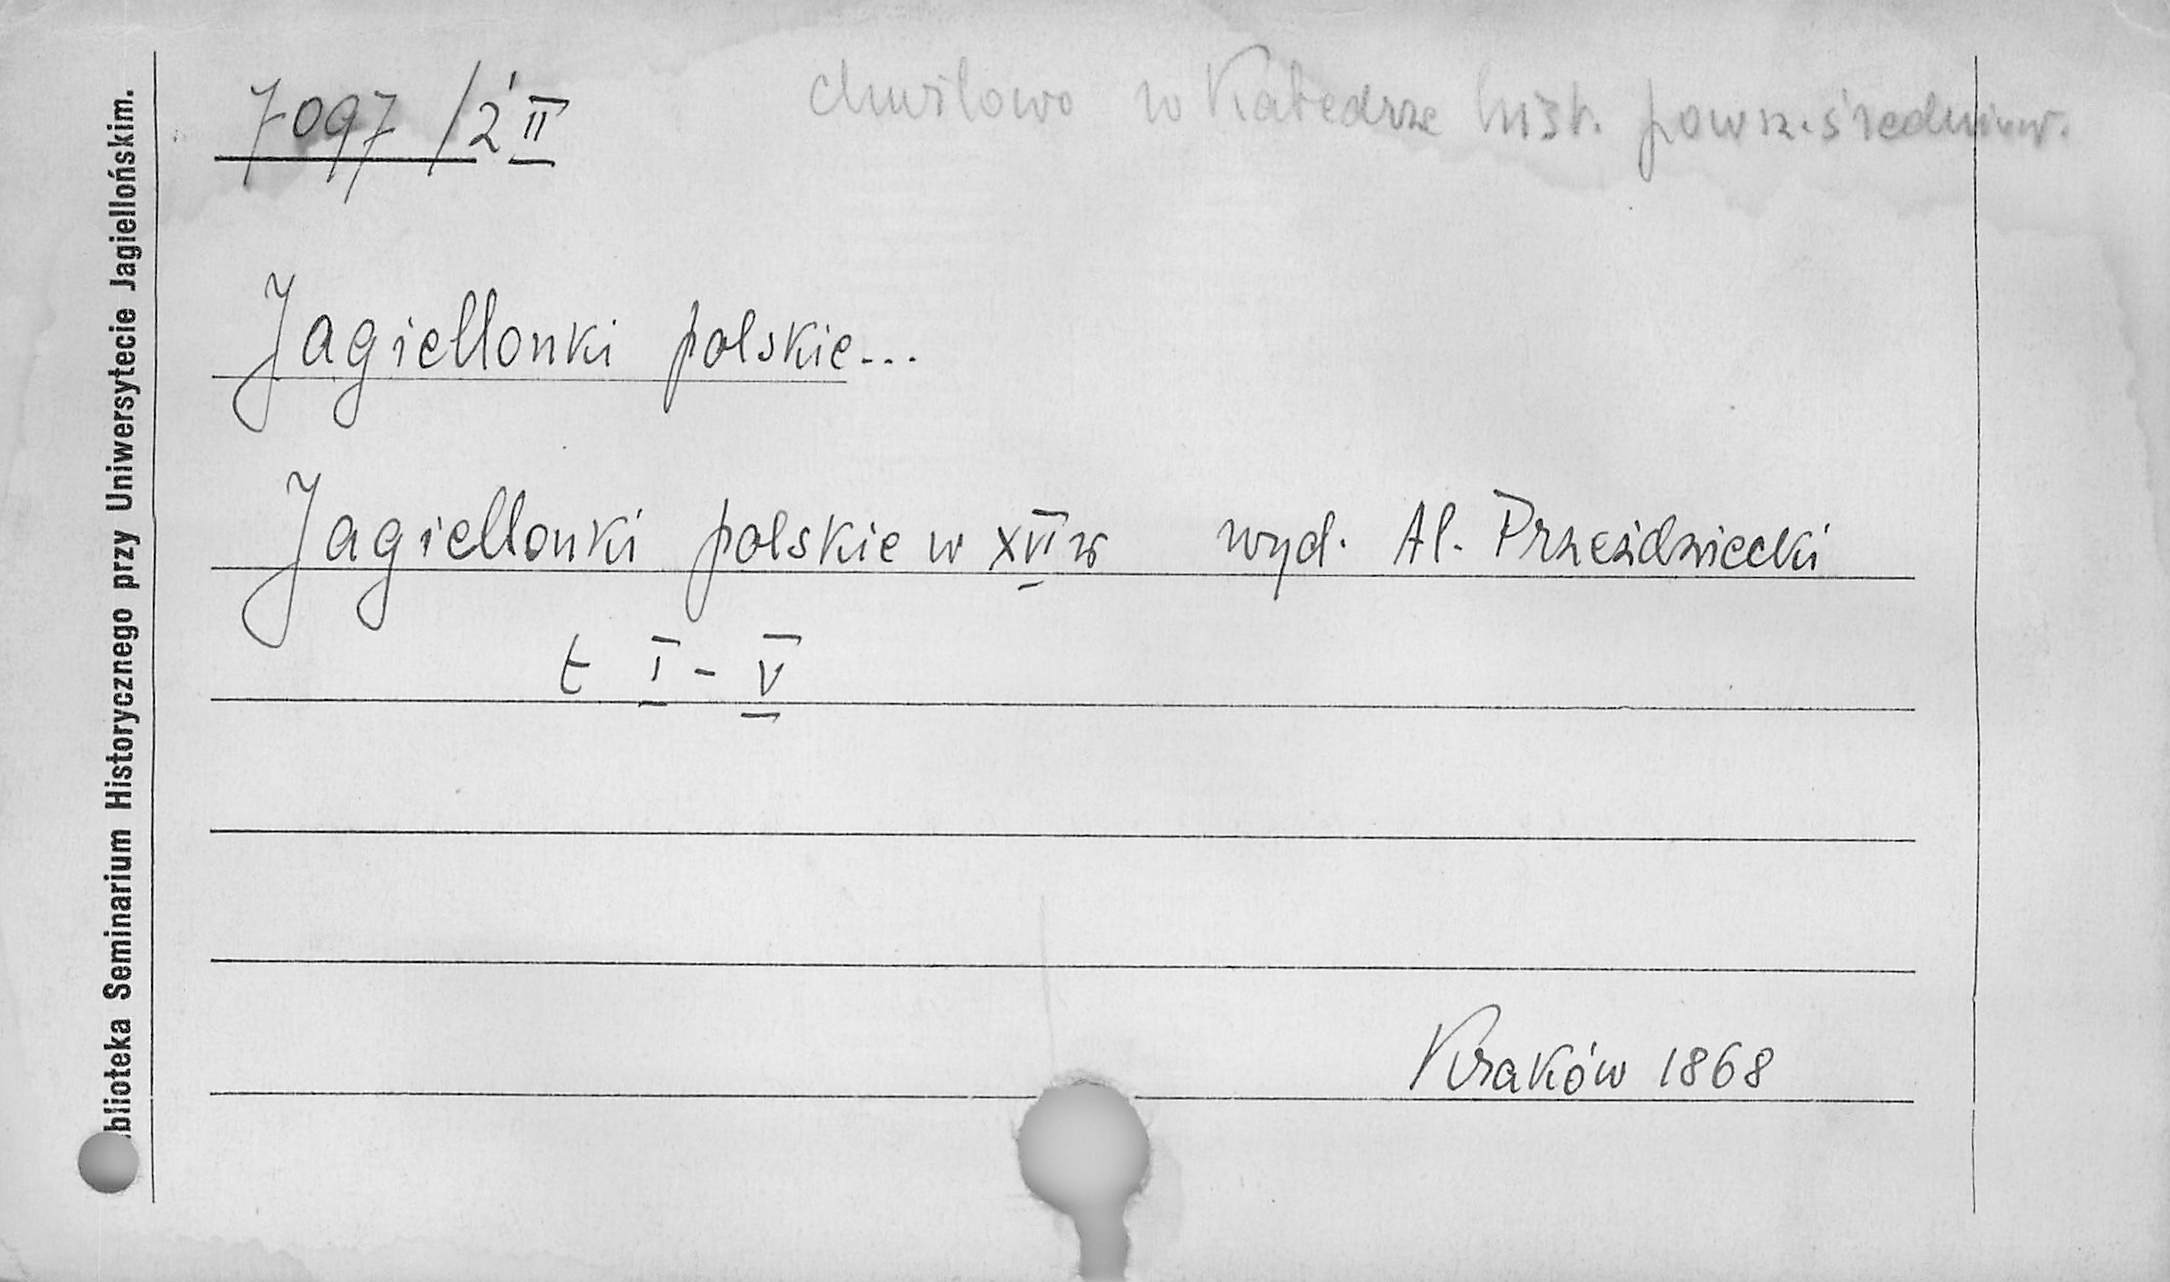 7097/2 II
chwilowo w Katedrze hist. powsz. średniow.
Jagiellonki polskie...
Jagiellonki polskie w XVI w wyd. Al. Przeździecki
t I - V
Kraków 1868
blioteka Seminarium Historycznego przy Uniwersytecie Jagiellońskim.